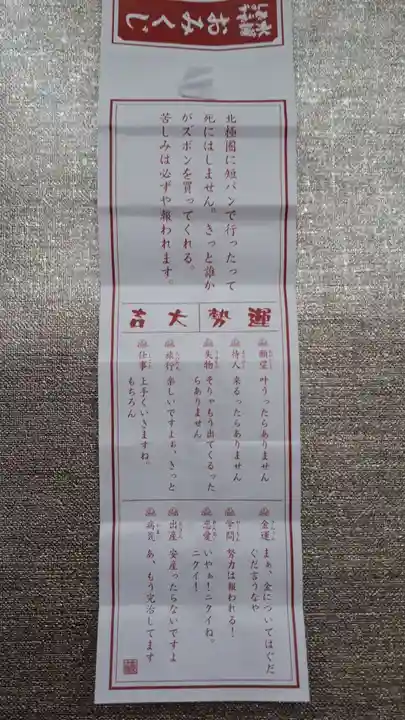 おみくじ
北極圏に短パンで行ったって
死にはしません。きっと誰か
がズボンを買ってくれる。
苦しみは必ずや報われます。
運勢
大吉
願望 叶うったらありません
待人 来るったらありません
失物 そりゃもう出てくるった
らありません
旅行 楽しいですよぉ、きっと
仕事 上手くいきますね。
もちろん
金運 まぁ、金についてはぐだ
ぐだ言うなや
学問 努力は報われる！
恋愛 いやぁ！ニクイね。
ニクイ！
出産 安産ったらないですよ
病気 あ、もう完治してます